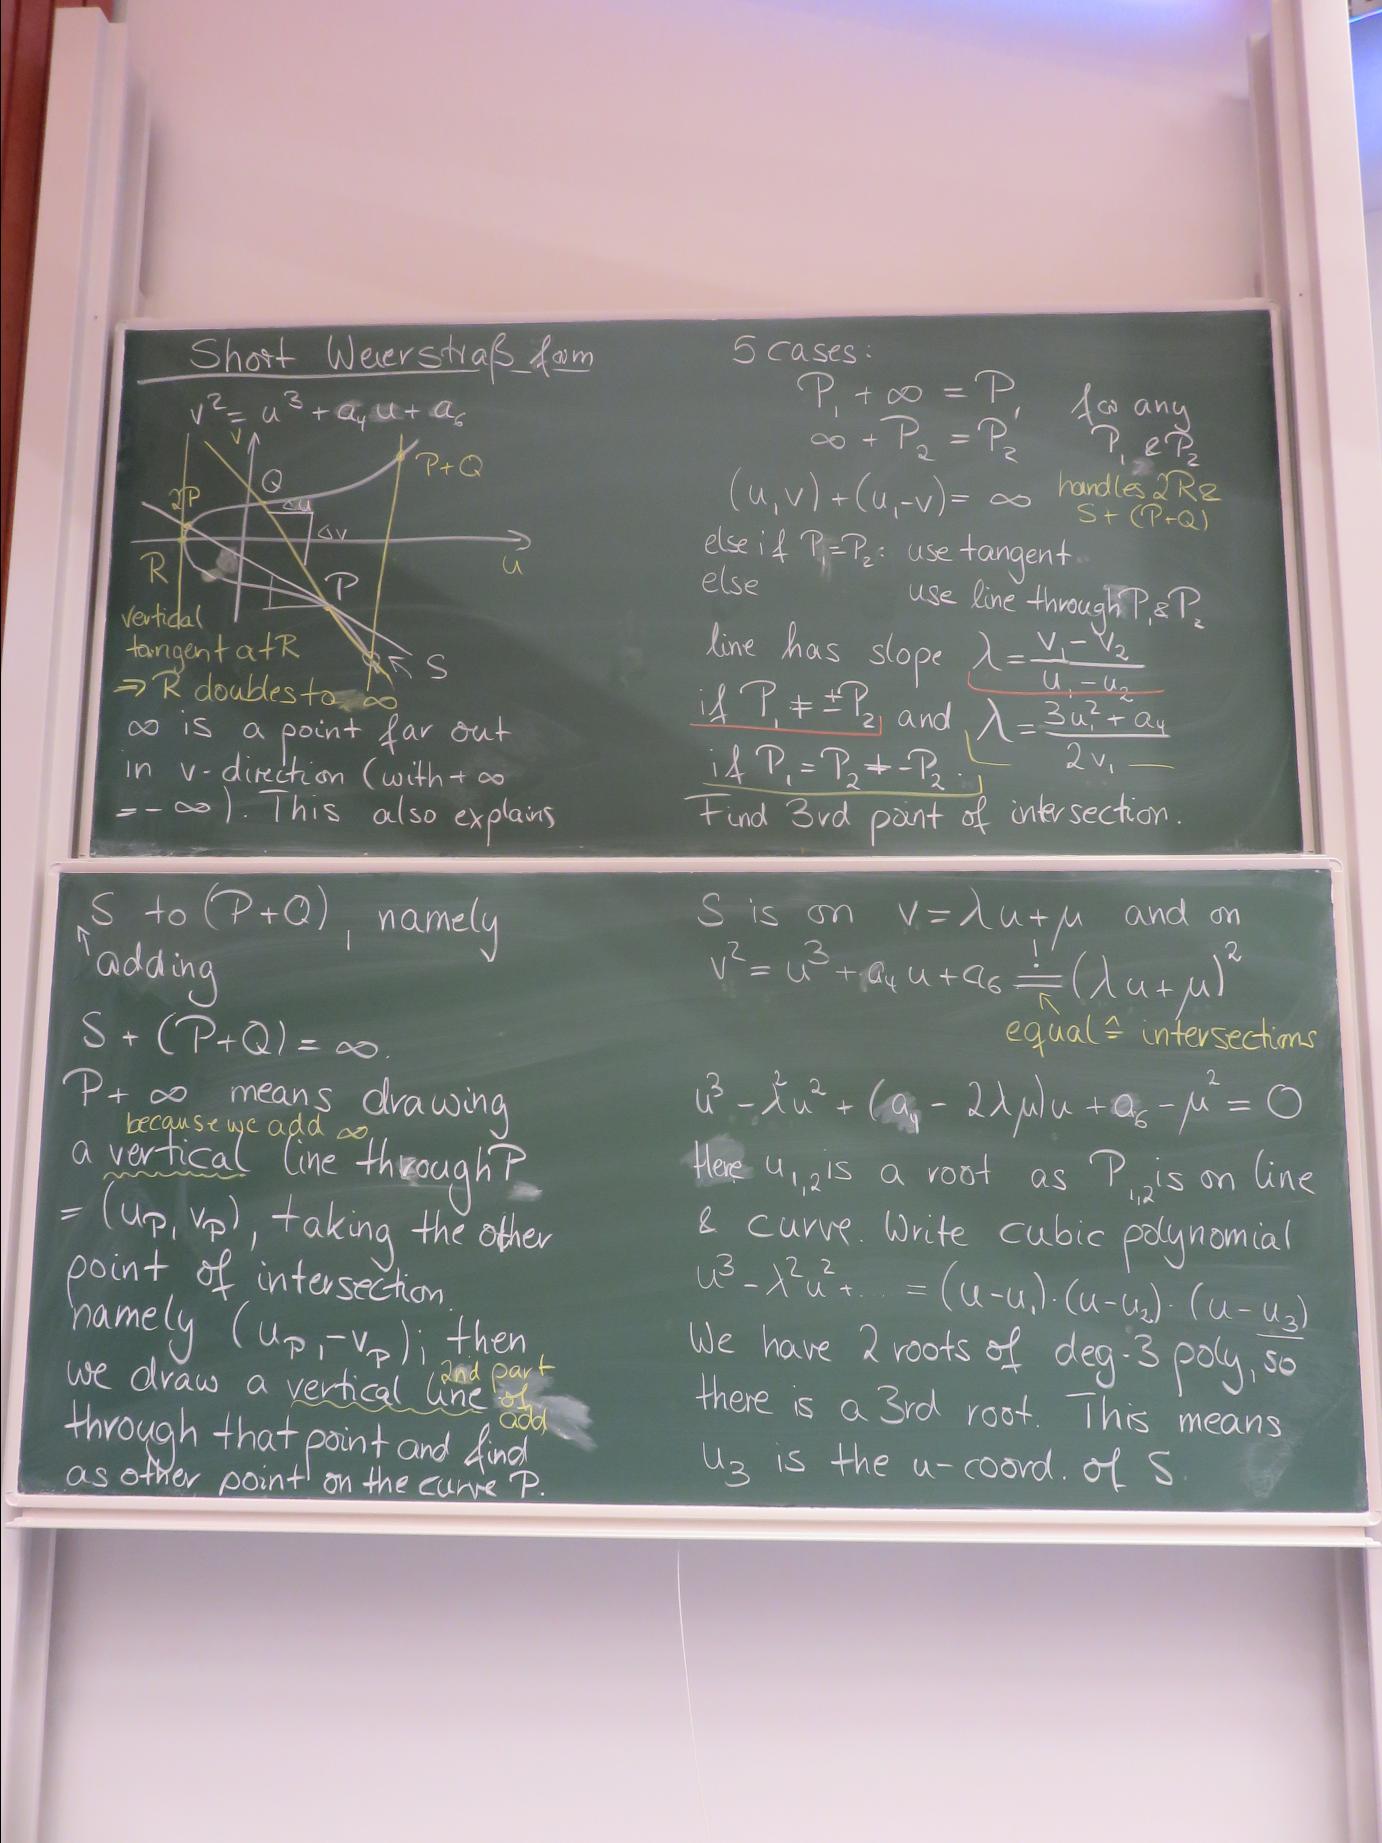 Short Weierstraß form
v² = u³ + a₄u + a₆
v
Q
P+Q
2P
Δu
Δv
u
R
P
S
vertical
tangent at R
⇒ R doubles to ∞
∞ is a point far out
in v-direction (with +∞
= -∞). This also explains
5 cases:
P₁ + ∞ = P₁ for any
∞ + P₂ = P₂ P₁ & P₂
(u,v) + (u,-v) = ∞ handles 2R &
S + (P+Q)
else if P₁ = P₂: use tangent
else use line through P₁ & P₂
line has slope λ = (v₁ - v₂)/(u₁ - u₂)
if P₁ ≠ ±P₂ and λ = (3u₁² + a₄)/(2v₁)
if P₁ = P₂ ≠ -P₂.
Find 3rd point of intersection.
S to (P+Q), namely
↑ adding
S + (P+Q) = ∞.
P + ∞ means drawing
because we add ∞
a vertical line through P
= (u_P, v_P), taking the other
point of intersection,
namely (u_P, -v_P); then
2nd part
we draw a vertical line of
add
through that point and find
as other point on the curve P.
S is on v = λu + μ and on
v² = u³ + a₄u + a₆ =! (λu + μ)²
equal ≙ intersections
u³ - λ²u² + (a₄ - 2λμ)u + a₆ - μ² = 0
Here u₁,₂ is a root as P₁,₂ is on line
& curve. Write cubic polynomial
u³ - λ²u² + ... = (u-u₁)·(u-u₂)·(u-u₃)
We have 2 roots of deg-3 poly, so
there is a 3rd root. This means
u₃ is the u-coord. of S.